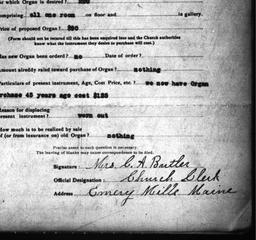 which Organ is desired?
comprising. all one room on floor and in gallery.
Price of proposed Organ? $90
(Form should not be returned till this has been enquired into and the Church authorities
know what the instrument they desire to purchase will cost.)
new Organ been ordered? no Date to order?
Amount already raised toward purchase of Organ? nothing
Particulars of present instrument, Age, Cost Price, etc.? we now have Organ
purchase 45 years ago cost $125
Reason for displacing
present instrument? worn out
How much is to be realized by sale
of (or from insurance on) old Organ? nothing
Precise assent to each question is necessary.
The leaving of blanks may cause correspondence to be died.
Signature Mrs. C. A. Butler
Official Designation Church Clerk
Address Emery Mills Maine